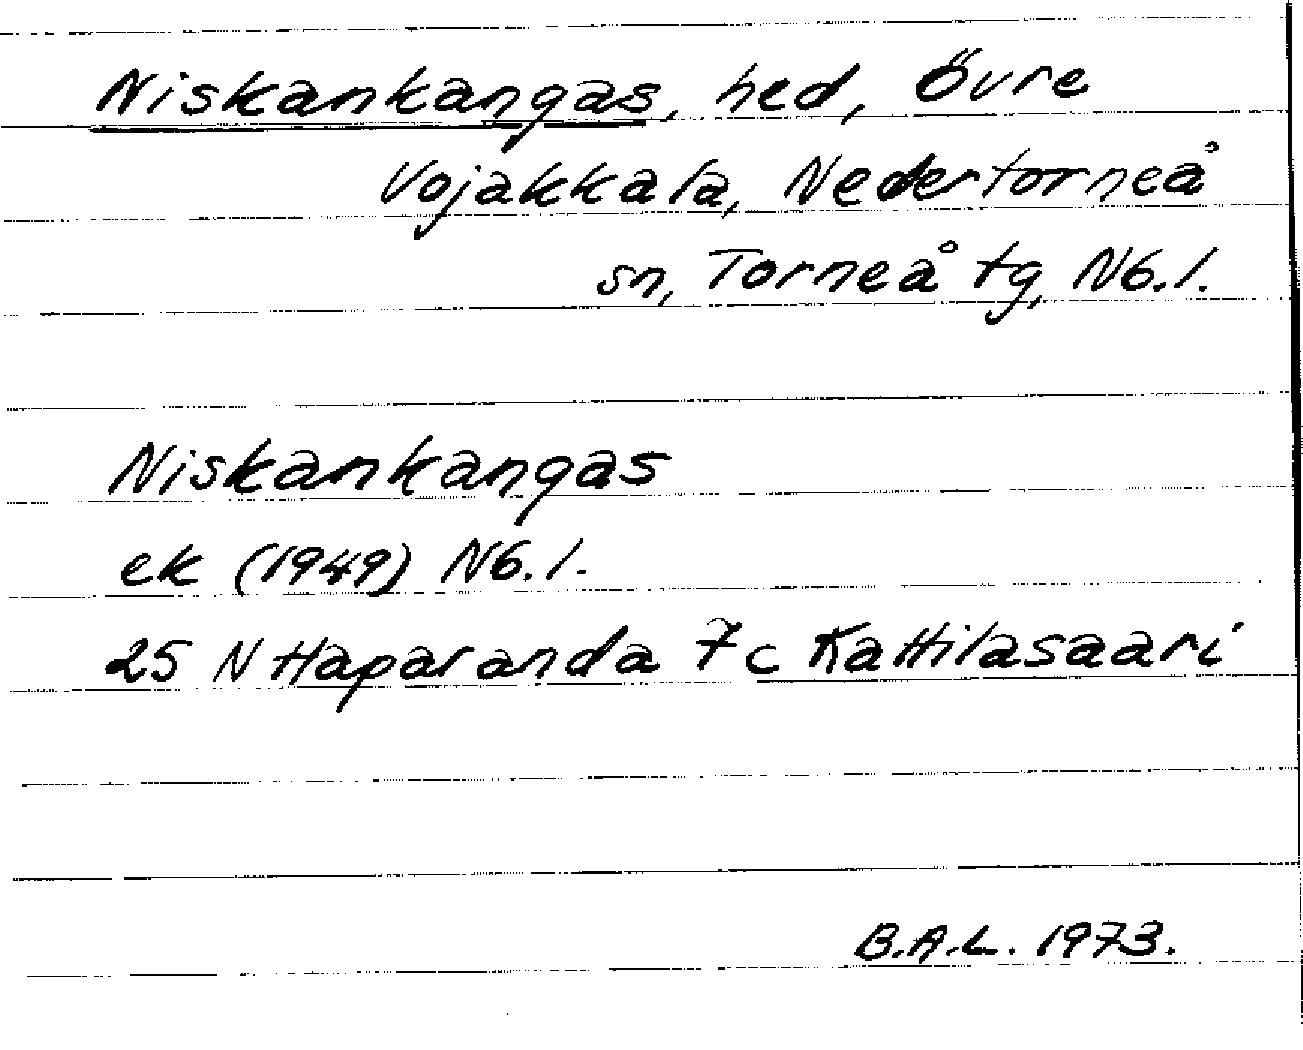 Niskankangas, hed, Övre
Vojakkala, Nedertorneå
sn, Torneå tg, Nb.l.
Niskankangas
ek (1949) Nb.l.
25 N Haparanda 7c Kattilasaari
B.A.L. 1973.